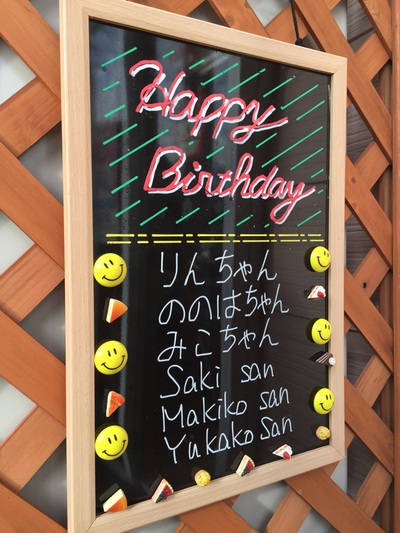 Happy
Birthday
りんちゃん
ののはちゃん
みこちゃん
Saki san
Makiko san
Yukako san